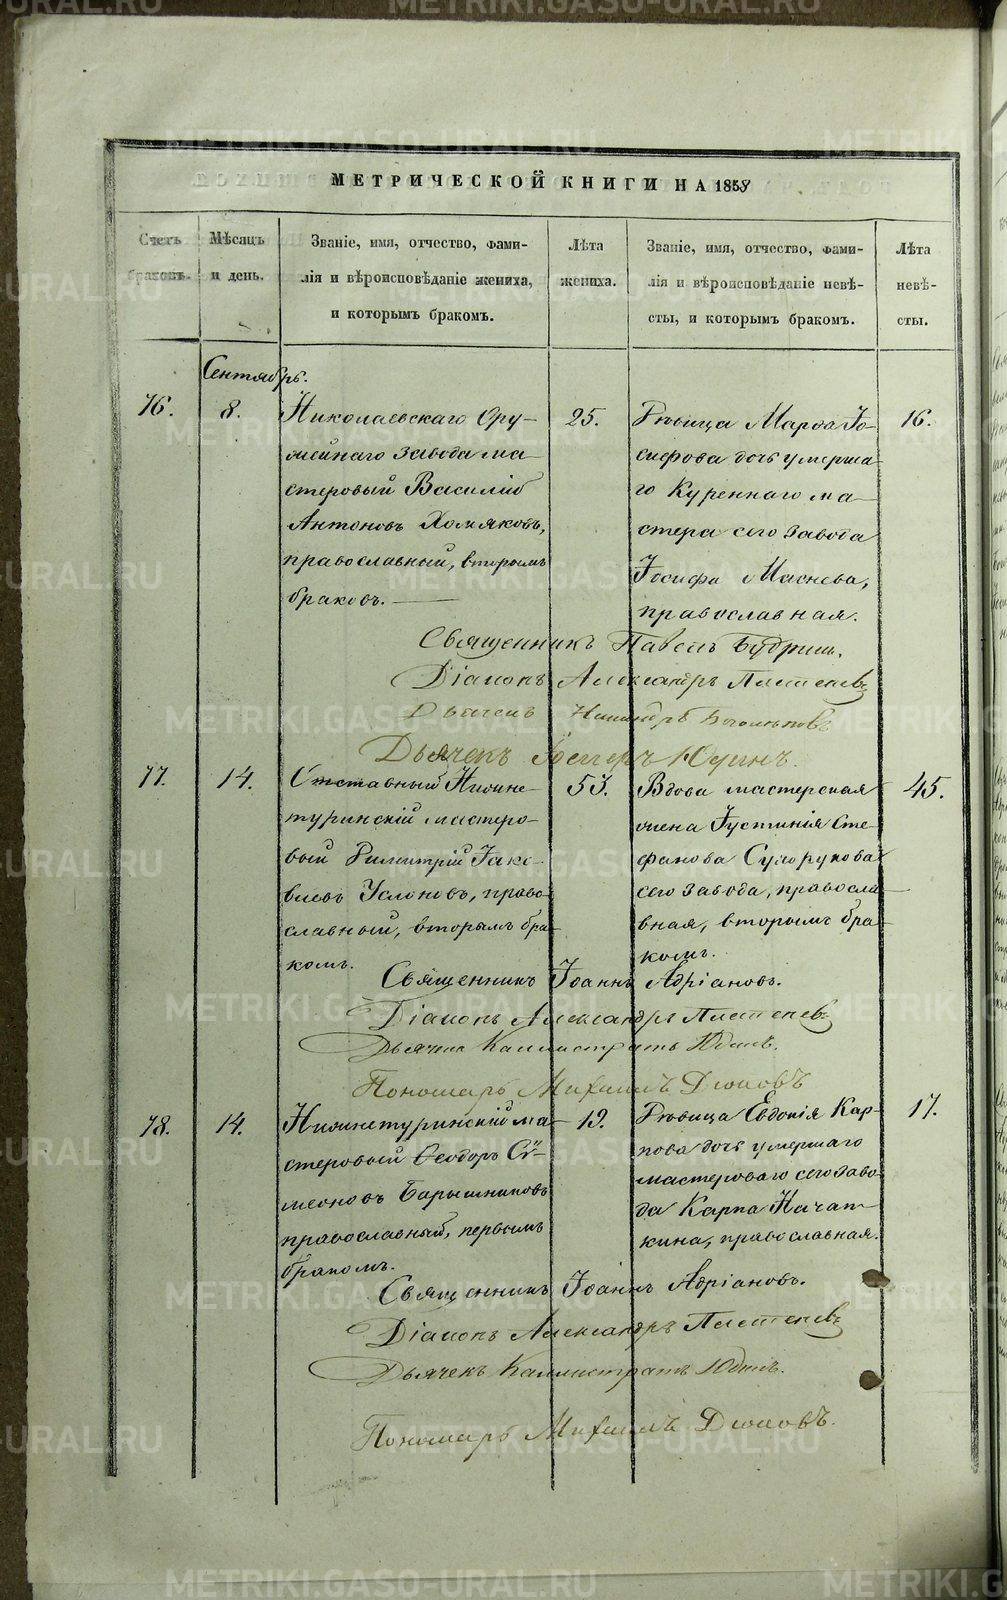 МЕТРИЧЕСКОЙ КНИГИ НА 1858
Счетъ браковъ.
Мѣсяцъ и день.
Званіе, имя, отчество, фами-
лія и вѣроисповѣданіе жениха,
и которымъ бракомъ.
Лѣта
жениха.
Званіе, имя, отчество, фами-
лія и вѣроисповѣданіе невѣ-
сты, и которымъ бракомъ.
Лѣта
невѣ-
сты.
Сентябрь.
76.
8.
Николаевскаго Ору-
жейнаго завода ма-
стеровый Василій
Антоновъ Хомяковъ,
православный, вторымъ
бракомъ.
25.
Дѣвица Марѳа Іо-
сифова дочь умерша-
го Куреннаго ма-
стера сего завода
Іосифа Маснева,
православная.
16.
Священникъ Павелъ Будринъ.
Діаконъ Александръ Плетеневъ
Дьячекъ
Дьячекъ Юдинъ.
77.
14.
Отставный Нижне-
туринскій мастеро-
вый Димитрій Іако-
влевъ Услоновъ, право-
славный, вторымъ бра-
комъ.
53.
Вдова мастерская
жена Іустинія Сте-
фанова Сухорукова
сего завода, правосла-
вная, вторымъ бра-
комъ.
45.
Священникъ Іоаннъ Адріановъ.
Діаконъ Александръ Плетеневъ
Дьячекъ Каллистратъ Юдинъ.
Пономарь Михаилъ Дюковъ
78.
14.
Нижнетуринскій ма-
стеровый Ѳеодоръ Сѵ-
меоновъ Барышниковъ
православный, первымъ
бракомъ.
19.
Дѣвица Евдокія Кар-
пова дочь умершаго
мастероваго сего заво-
да Карпа Начат-
кина, православная.
17.
Священникъ Іоаннъ Адріановъ.
Діаконъ Александръ Плетеневъ
Дьячекъ Каллистратъ Юдинъ.
Пономарь Михаилъ Дюковъ.
METRIKI.GASO-URAL.RU